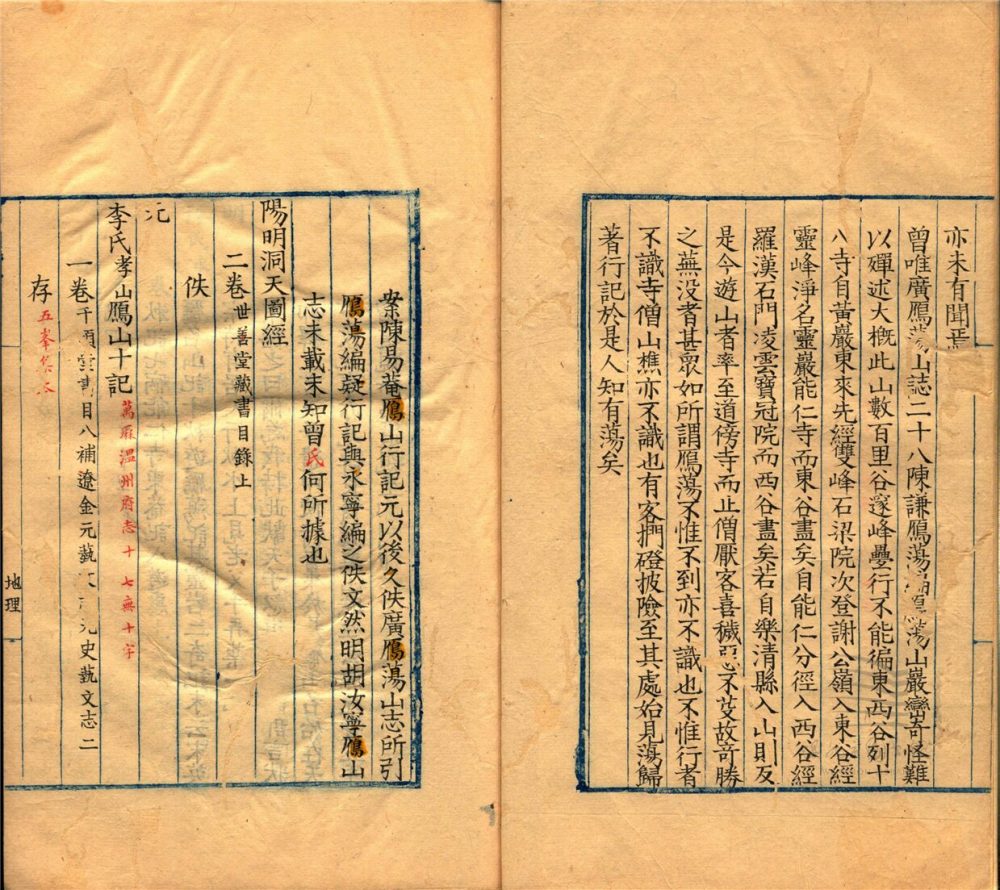 亦未有聞焉
曾唯廣鴈蕩山誌二十八陳謙鴈蕩編鴈蕩山巖巒奇怪難
以殫述大概此山數百里谷邃峰疊行不能徧東西谷列十
八寺自黃巖東來先經雙峰石梁院次登謝公嶺入東谷經
靈峰淨名靈巖能仁寺而東谷盡矣自能仁分徑入西谷經
羅漢石門凌雲寶冠院而西谷盡矣若自樂清縣入山則反
是今遊山者率至道傍寺而止僧厭客喜穢惡不芟故奇勝
之蕪没者甚衆如所謂鴈蕩不惟不到亦不識也不惟行者
不識寺僧山樵亦不識也有客捫磴披險至其處始見蕩歸
著行記於是人知有蕩矣
案陳昜菴鴈山行記元以後久佚廣鴈蕩山志所引
鴈蕩編疑行記與永寧編之佚文然明胡汝寧鴈山
志未載未知曾氏何所據也
陽明洞天圖經
二卷世善堂藏書目錄上
佚
元
李氏孝山鴈山十記
一卷千頃堂書目八補遼金元藝文志元史藝文志二
萬厤溫州府志十 七無十字
存五峯集本
地理